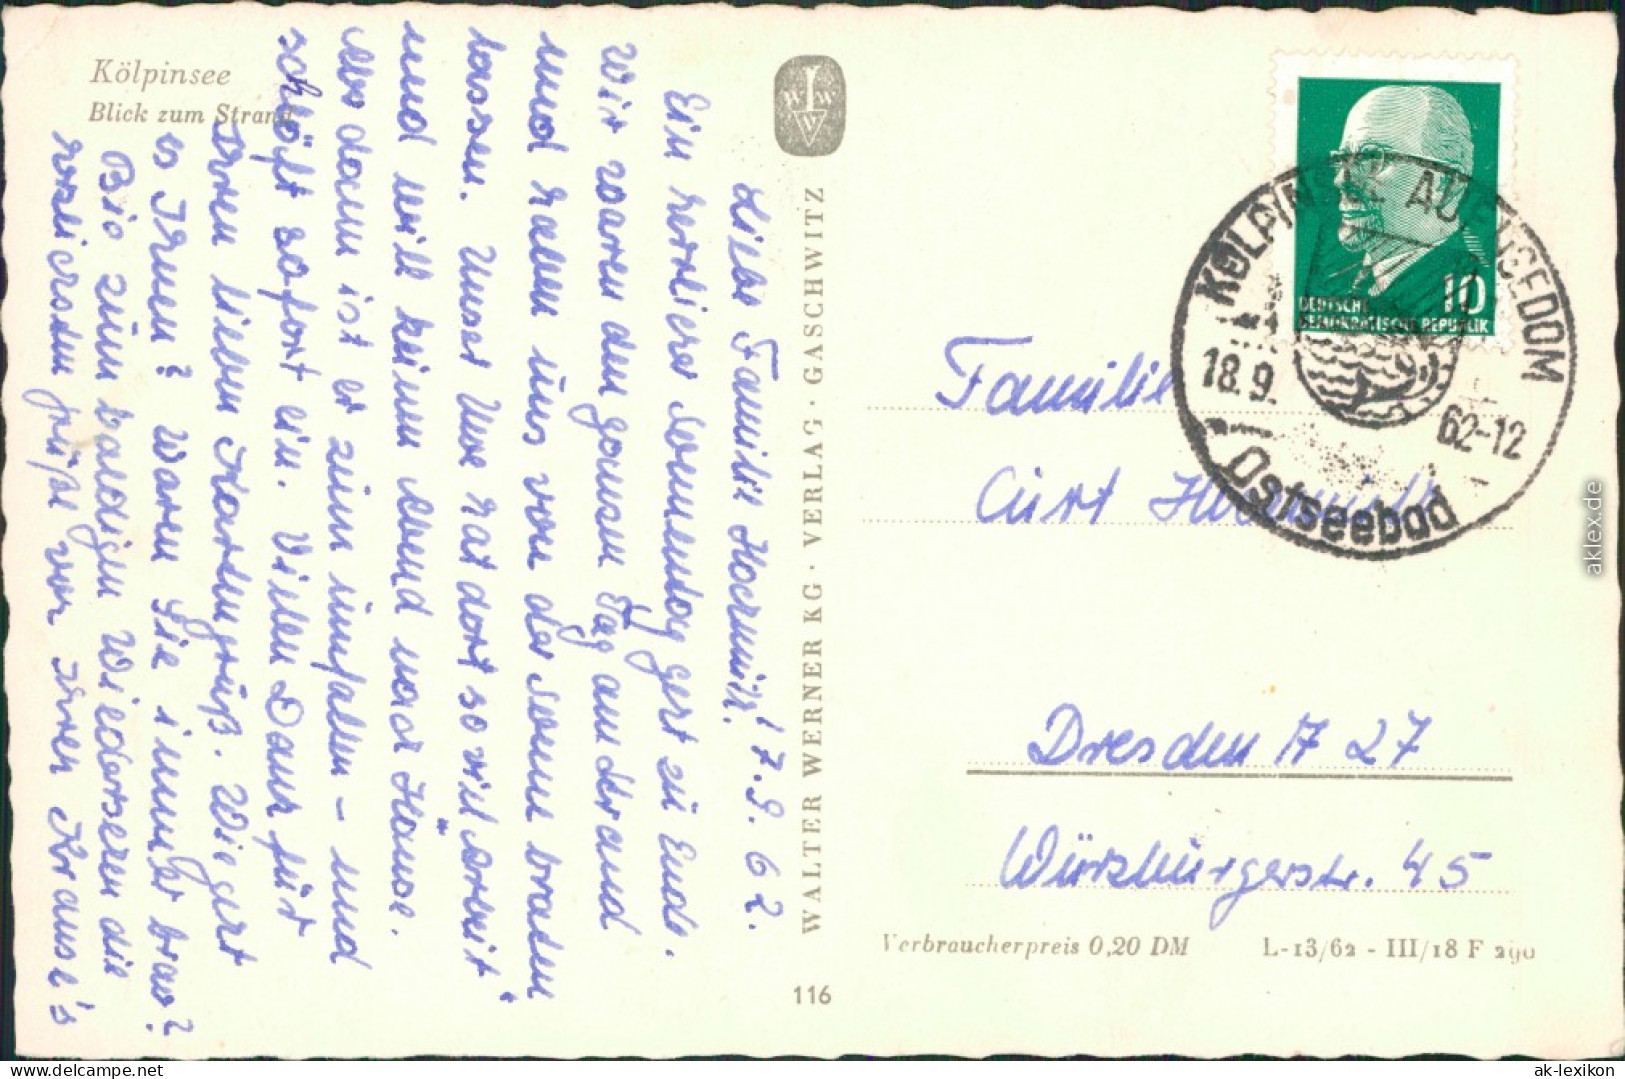 Kölpinsee
Blick zum Strand
Liebe Familie 7.9.62.
Ein herrlicher Sonnentag geht zu Ende.
Wir waren den ganzen Tag am Strand
und haben uns von der Sonne braten
lassen. Unser Uwe hat dort so viel "Arbeit"
und will keinen Abend nach Hause.
Also dann ist er zum umfallen - und
schläft sofort ein. Vielen Dank für
Ihren lieben Kartengruß. Wie geht
es Ihnen? Waren Sie immer brav?
Bis zum baldigen Wiedersehen die
herzlichsten Grüße von Ihren Krause's
WALTER WERNER KG · VERLAG · GASCHWITZ
116
W W
V
10
DEUTSCHE
DEMOKRATISCHE REPUBLIK
KÖLPINSEE AUF USEDOM
18.9.
62-12
Ostseebad
Familie
Curt
Dresden A 27
Würzburgerstr. 45
Verbraucherpreis 0,20 DM
L-13/62 - III/18 F 290
aklex.de
www.delcampe.net
ak-lexikon